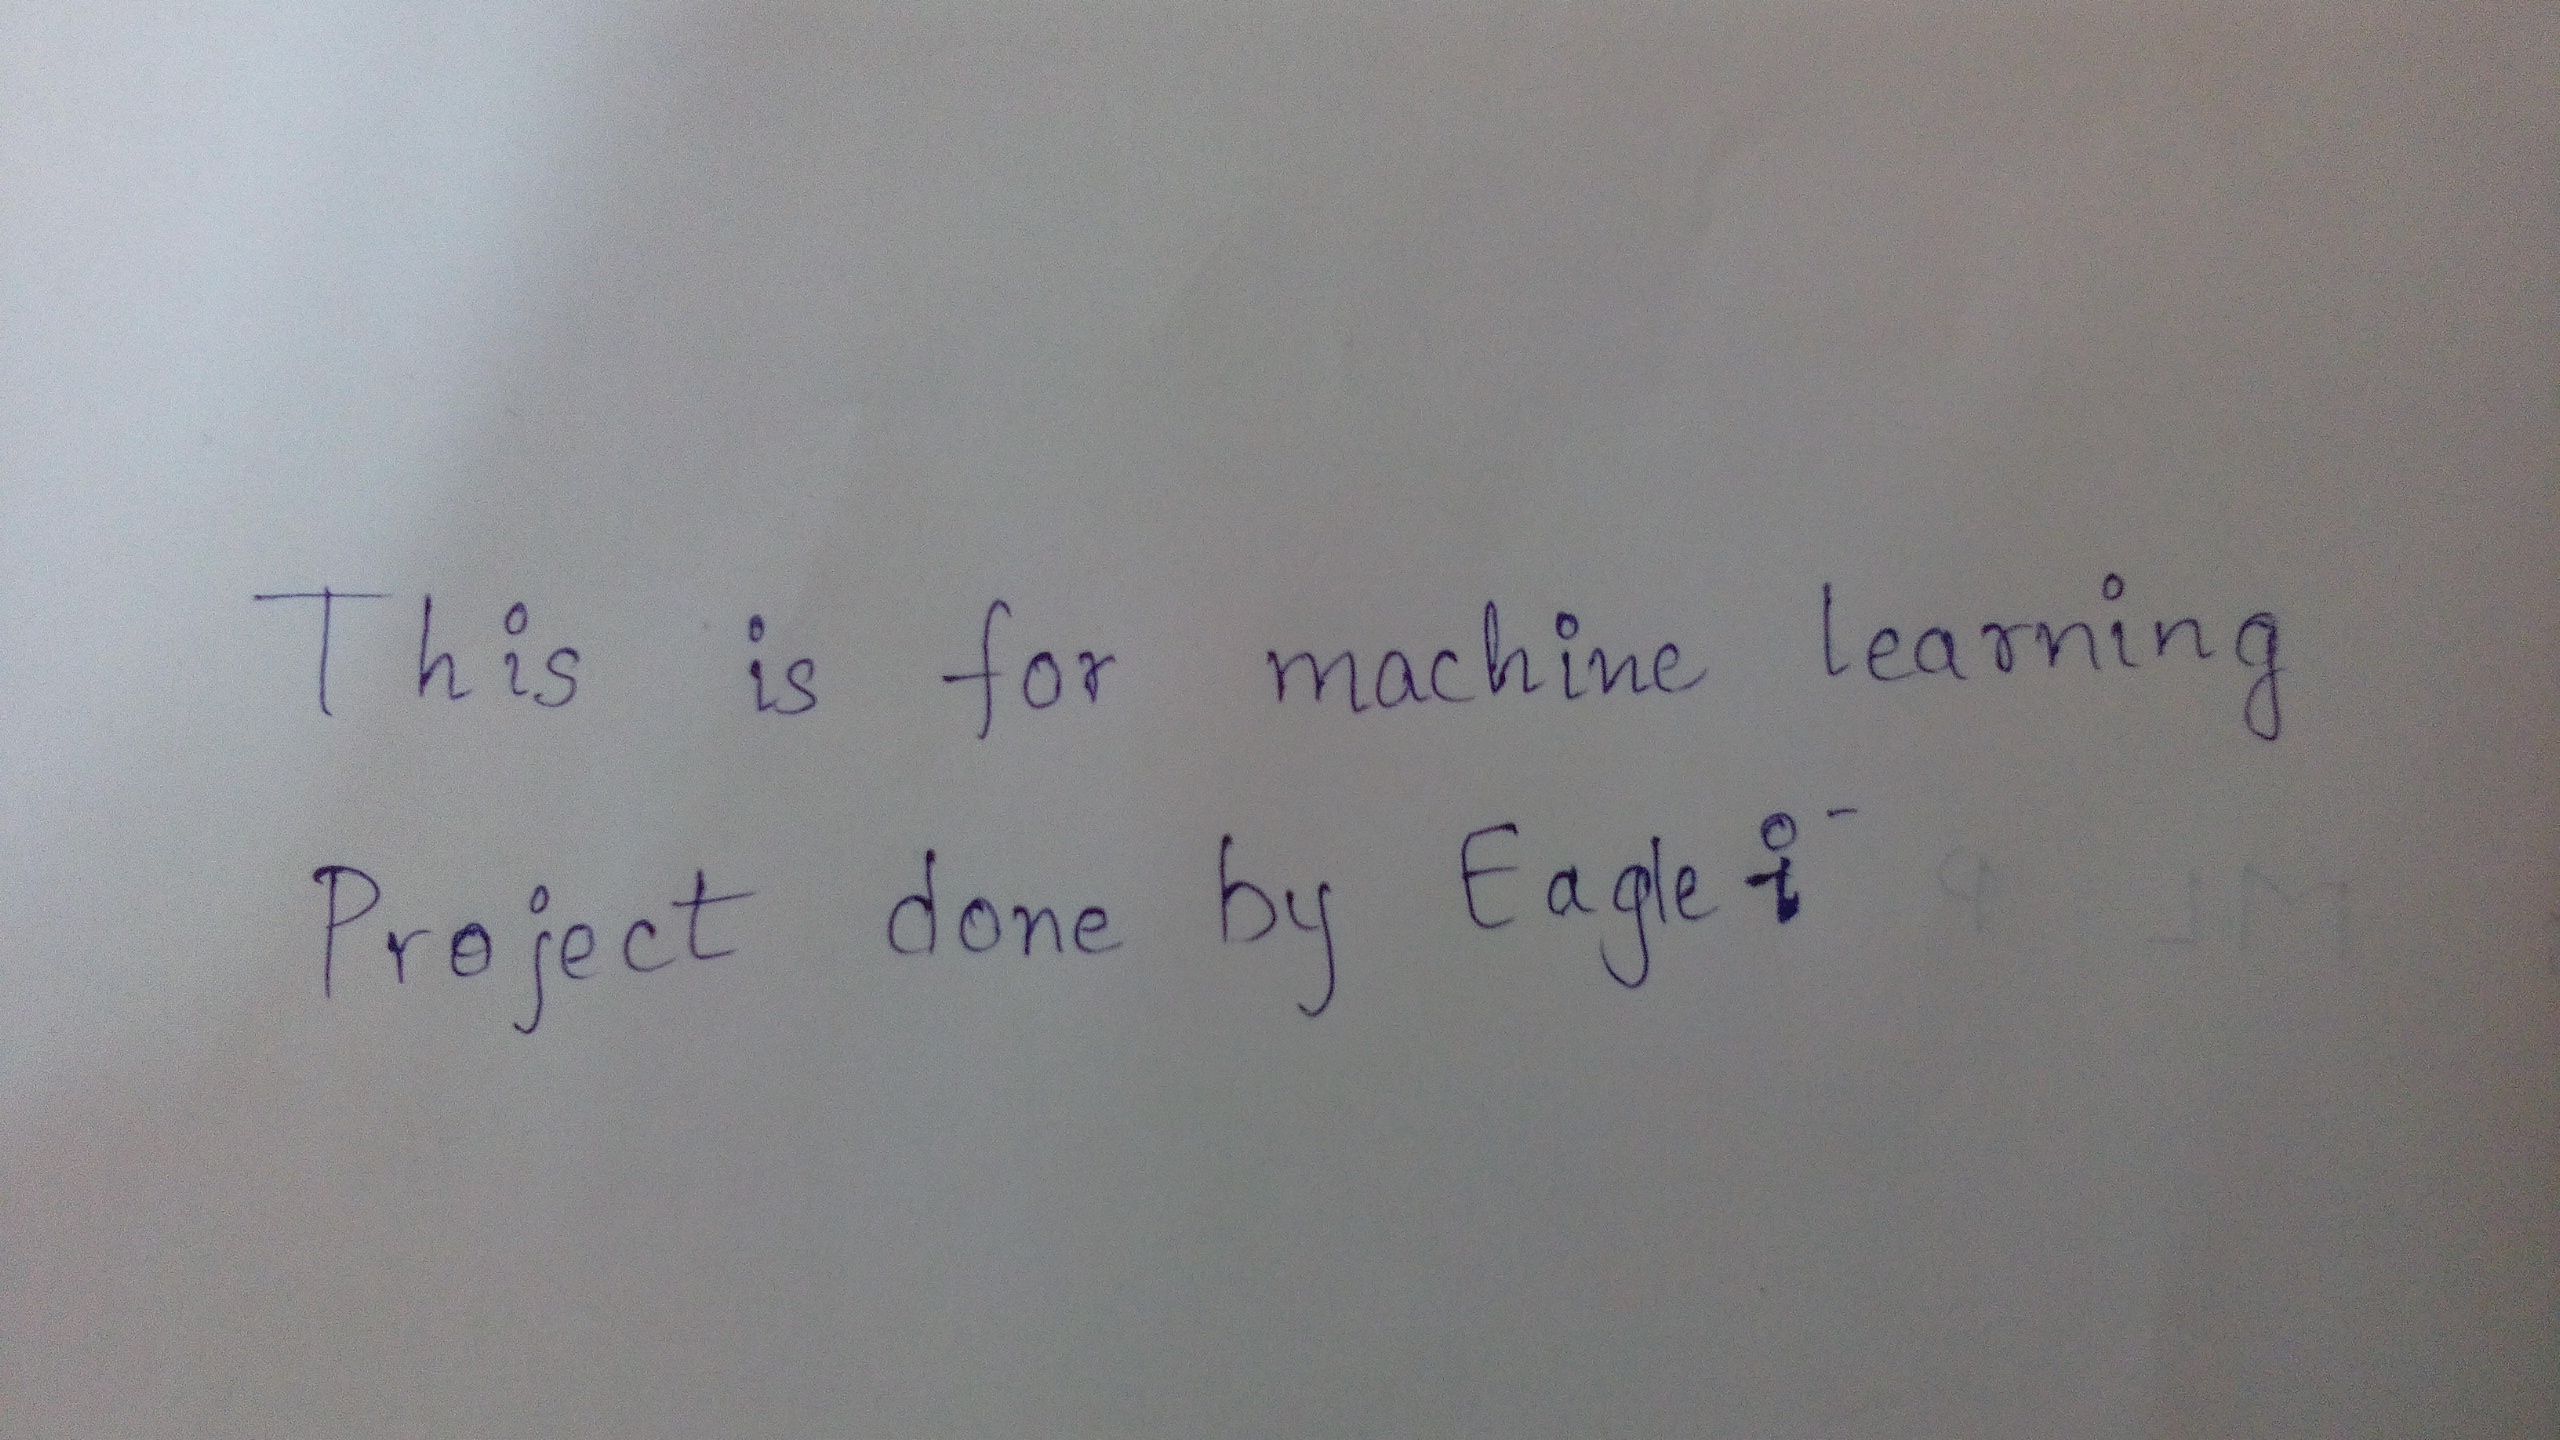 This is for machine learning
Project done by Eagle i-